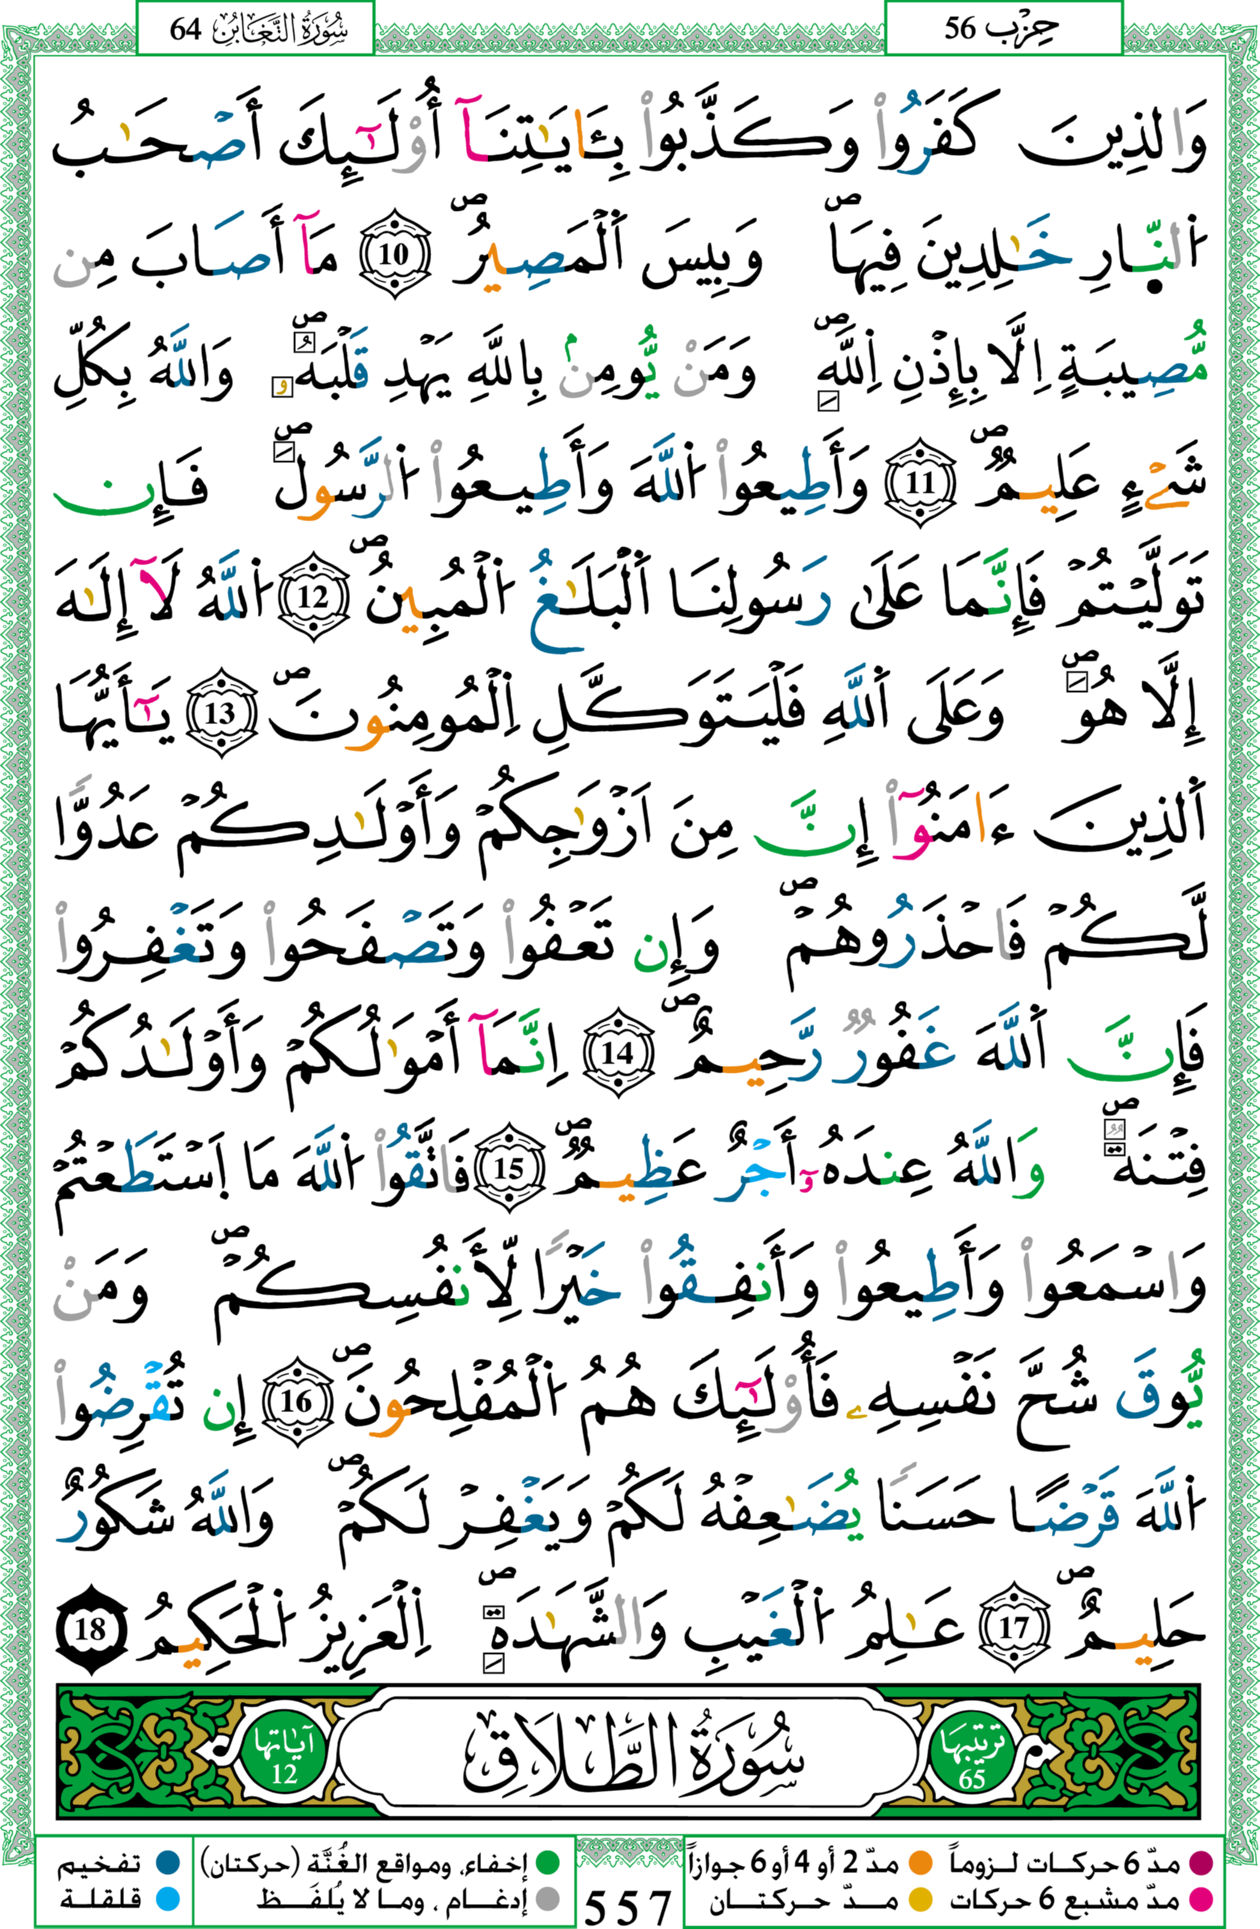 حِزْب 56
سُورَةُ التَّغَابُنِ 64
وَالذِينَ كَفَرُواْ وَكَذَّبُواْ بِـَٔايَٰتِنَآ أُوْلَٰٓئِكَ أَصْحَٰبُ
اُ۬لنّ۪ارِ خَٰلِدِينَ فِيهَاۖ وَبِيسَ اَ۬لْمَصِيرُۖ 10 مَآ أَصَابَ مِن
مُّصِيبَةٍ اِلَّا بِإِذْنِ اِ۬للَّهِۖ وَمَنْ يُّومِنۢ بِاللَّهِ يَهْدِ قَلْبَهُۥۖ وَاللَّهُ بِكُلِّ
شَےْءٍ عَلِيمٌۖ 11 وَأَطِيعُواْ اُ۬للَّهَ وَأَطِيعُواْ اُ۬لرَّسُولَۖ فَإِن
تَوَلَّيْتُمْ فَإِنَّمَا عَلَىٰ رَسُولِنَا اَ۬لْبَلَٰغُ اُ۬لْمُبِينُۖ 12 اُ۬للَّهُ لَآ إِلَٰهَ
إِلَّا هُوَۖ وَعَلَى اَ۬للَّهِ فَلْيَتَوَكَّلِ اِ۬لْمُومِنُونَۖ 13 يَٰٓأَيُّهَا
اَ۬لذِينَ ءَامَنُوٓاْ إِنَّ مِنَ اَزْوَٰجِكُمْ وَأَوْلَٰدِكُمْ عَدُوّاً
لَّكُمْ فَاحْذَرُوهُمْۖ وَإِن تَعْفُواْ وَتَصْفَحُواْ وَتَغْفِرُواْ
فَإِنَّ اَ۬للَّهَ غَفُورٌ رَّحِيمٌۖ 14 اِنَّمَآ أَمْوَٰلُكُمْ وَأَوْلَٰدُكُمْ
فِتْنَةٌۖ وَاللَّهُ عِندَهُۥٓ أَجْرٌ عَظِيمٌۖ 15 فَاتَّقُواْ اُ۬للَّهَ مَا اَ۪سْتَطَعْتُمْ
وَاسْمَعُواْ وَأَطِيعُواْ وَأَنفِقُواْ خَيْراً لِّأَنفُسِكُمْۖ وَمَنْ
يُّوقَ شُحَّ نَفْسِهِۦ فَأُوْلَٰٓئِكَ هُمُ اُ۬لْمُفْلِحُونَۖ 16 إِن تُقْرِضُواْ
اُ۬للَّهَ قَرْضاً حَسَناً يُضَٰعِفْهُ لَكُمْ وَيَغْفِرْ لَكُمْۖ وَاللَّهُ شَكُورٌ
حَلِيمٌۖ 17 عَٰلِمُ اُ۬لْغَيْبِ وَالشَّهَٰدَةِۖ اِ۬لْعَزِيزُ اُ۬لْحَكِيمُ 18
ترتيبها 65 سُورَةُ الطَّلَاقِ آياتها 12
مدّ 6 حركات لـزوماً مدّ 2 أو 4 أو 6 جوازاً
مدّ مشبع 6 حركات مـدّ حركتـان
557
إخفاء، ومواقع الغُنَّة (حركتان) تفخيم
إدغـام ، ومـا لا يُلفَـظ قلقلة